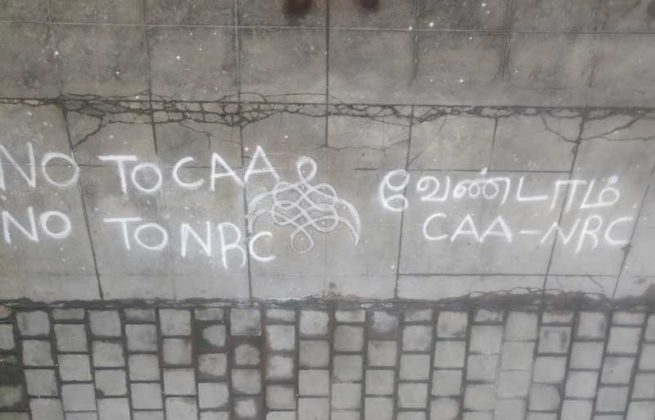 NO TO CAA
NO TO NRC
வேண்டாம்
CAA-NRC